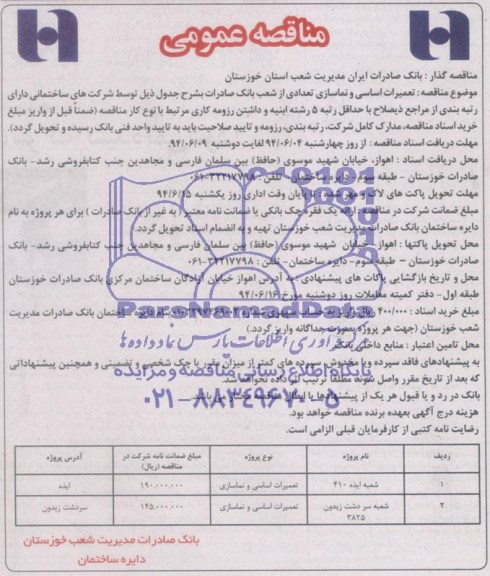 مناقصه عمومی
مناقصه گذار : بانک صادرات ایران مدیریت شعب استان خوزستان
موضوع مناقصه : تعمیرات اساسی و نماسازی تعدادی از شعب بانک صادرات بشرح جدول ذیل توسط شرکت های ساختمانی دارای
رتبه بندی از مراجع ذیصلاح با حداقل رتبه ۵ رشته ابنیه و داشتن رزومه کاری مرتبط با نوع کار مناقصه (ضمناً قبل از واریز مبلغ
خرید اسناد مناقصه، مدارک کامل شرکت، رتبه بندی، رزومه و تایید صلاحیت باید به تایید واحد فنی بانک رسیده و تحویل گردد).
مهلت دریافت اسناد مناقصه : از روز چهارشنبه ۹۴/۰۶/۰۴ لغایت دوشنبه ۹۴/۰۶/۰۹
محل دریافت اسناد : اهواز، خیابان شهید موسوی (حافظ) بین سلمان فارسی و مجاهدین جنب کتابفروشی رشد- بانک
صادرات خوزستان - طبقه سوم - دایره ساختمان - تلفن : ۳۲۲۱۷۷۹۸-۰۶۱
مهلت تحویل پاکت های لاک و مهر شده : تا پایان وقت اداری روز یکشنبه ۹۴/۶/۱۵
مبلغ ضمانت شرکت در مناقصه : ارائه یک فقره چک بانکی یا ضمانت نامه معتبر ( به غیر از بانک صادرات ) برای هر پروژه به نام
دایره ساختمان بانک صادرات مدیریت شعب خوزستان تهیه و به انضمام اسناد تحویل گردد.
محل تحویل پاکتها : اهواز - خیابان شهید موسوی (حافظ) بین سلمان فارسی و مجاهدین جنب کتابفروشی رشد- بانک
صادرات خوزستان - طبقه سوم - دایره ساختمان - تلفن : ۳۲۲۱۷۷۹۸-۰۶۱
محل و تاریخ بازگشایی پاکات های پیشنهادی : به آدرس اهواز خیابان آزادگان ساختمان مرکزی بانک صادرات خوزستان
طبقه اول - دفتر کمیته معاملات روز دوشنبه مورخ ۹۴/۰۶/۱۶
مبلغ خرید اسناد : ۴۰۰/۰۰۰ دایره ساختمان بانک صادرات مدیریت
شعب خوزستان (جهت هر پروژه بصورت جداگانه واریز گردد.)
محل تامین اعتبار : منابع داخلی بانک
به پیشنهادهای فاقد سپرده ویا مخدوش، سپرده های کمتر از میزان مقرر یا چک شخصی و تضمینی و همچنین پیشنهاداتی
که بعد از تاریخ مقرر واصل شوند مطلقا ترتیب اثر داده نخواهد شد.
بانک در رد و یا قبول هر یک از پیشنهادها
هزینه درج آگهی بعهده برنده مناقصه خواهد بود.
رضایت نامه کتبی از کارفرمایان قبلی الزامی است.
ردیف نام پروژه نوع پروژه مبلغ ضمانت نامه شرکت در مناقصه (ریال) آدرس پروژه
۱ شعبه ایذه ۴۱۰ تعمیرات اساسی و نماسازی ۱۹۰.۰۰۰.۰۰۰ ایذه
۲ شعبه سر دشت زیدون ۳۸۲۵ تعمیرات اساسی و نماسازی ۱۴۵.۰۰۰.۰۰۰ سردشت زیدون
بانک صادرات مدیریت شعب خوزستان
دایره ساختمان
ParsNamadData
فن آوری اطلاعات پارس نماد داده ها
پایگاه اطلاع رسانی مناقصه و مزایده
۰۲۱-۸۸۳۴۹۶۷۰-۵